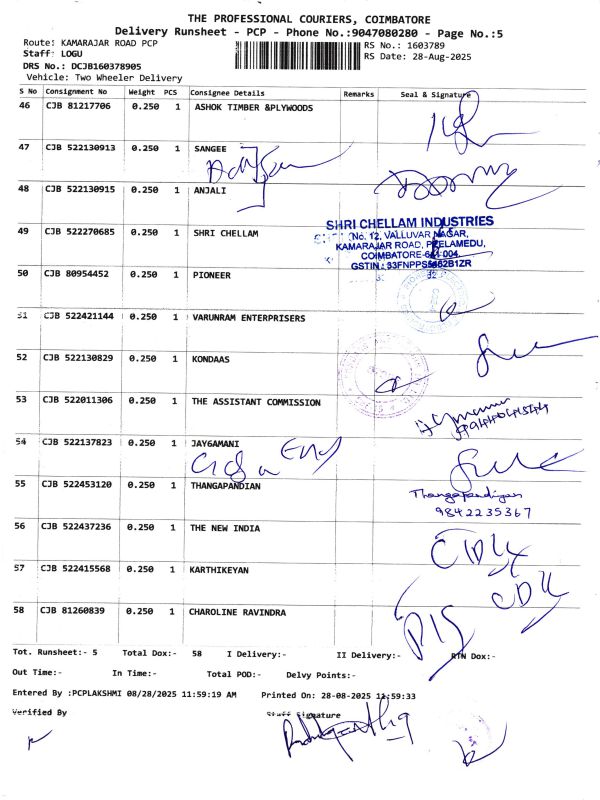 THE PROFESSIONAL COURIERS, COIMBATORE
Delivery Runsheet - PCP - Phone No.:9047080280 - Page No.:5
Route: KAMARAJAR ROAD PCP RS No.: 1603789
Staff: LOGU RS Date: 28-Aug-2025
DRS No.: DCJB160378905
Vehicle: Two Wheeler Delivery
S No Consignment No Weight PCS Consignee Details Remarks Seal & Signature
46 CJB 81217706 0.250 1 ASHOK TIMBER &PLYWOODS
47 CJB 522130913 0.250 1 SANGEE
48 CJB 522130915 0.250 1 ANJALI
SHRI CHELLAM INDUSTRIES
No. 12, VALLUVAR NAGAR,
49 CJB 522270685 0.250 1 SHRI CHELLAM
KAMARAJAR ROAD, PEELAMEDU,
COIMBATORE-641 004.
GSTIN : 33FNPPS5462B1ZR
50 CJB 80954452 0.250 1 PIONEER
51 CJB 522421144 0.250 1 VARUNRAM ENTERPRISERS
52 CJB 522130829 0.250 1 KONDAAS
53 CJB 522011306 0.250 1 THE ASSISTANT COMMISSION
54 CJB 522137823 0.250 1 JAYGAMANI
55 CJB 522453120 0.250 1 THANGAPANDIAN
Thangapandiyan
9842235367
56 CJB 522437236 0.250 1 THE NEW INDIA
57 CJB 522415568 0.250 1 KARTHIKEYAN
58 CJB 81260839 0.250 1 CHAROLINE RAVINDRA
Tot. Runsheet:- 5 Total Dox:- 58 I Delivery:- II Delivery:- RTN Dox:-
Out Time:- In Time:- Total POD:- Delvy Points:-
Entered By :PCPLAKSHMI 08/28/2025 11:59:19 AM Printed On: 28-08-2025 11:59:33
Verified By Staff Signature